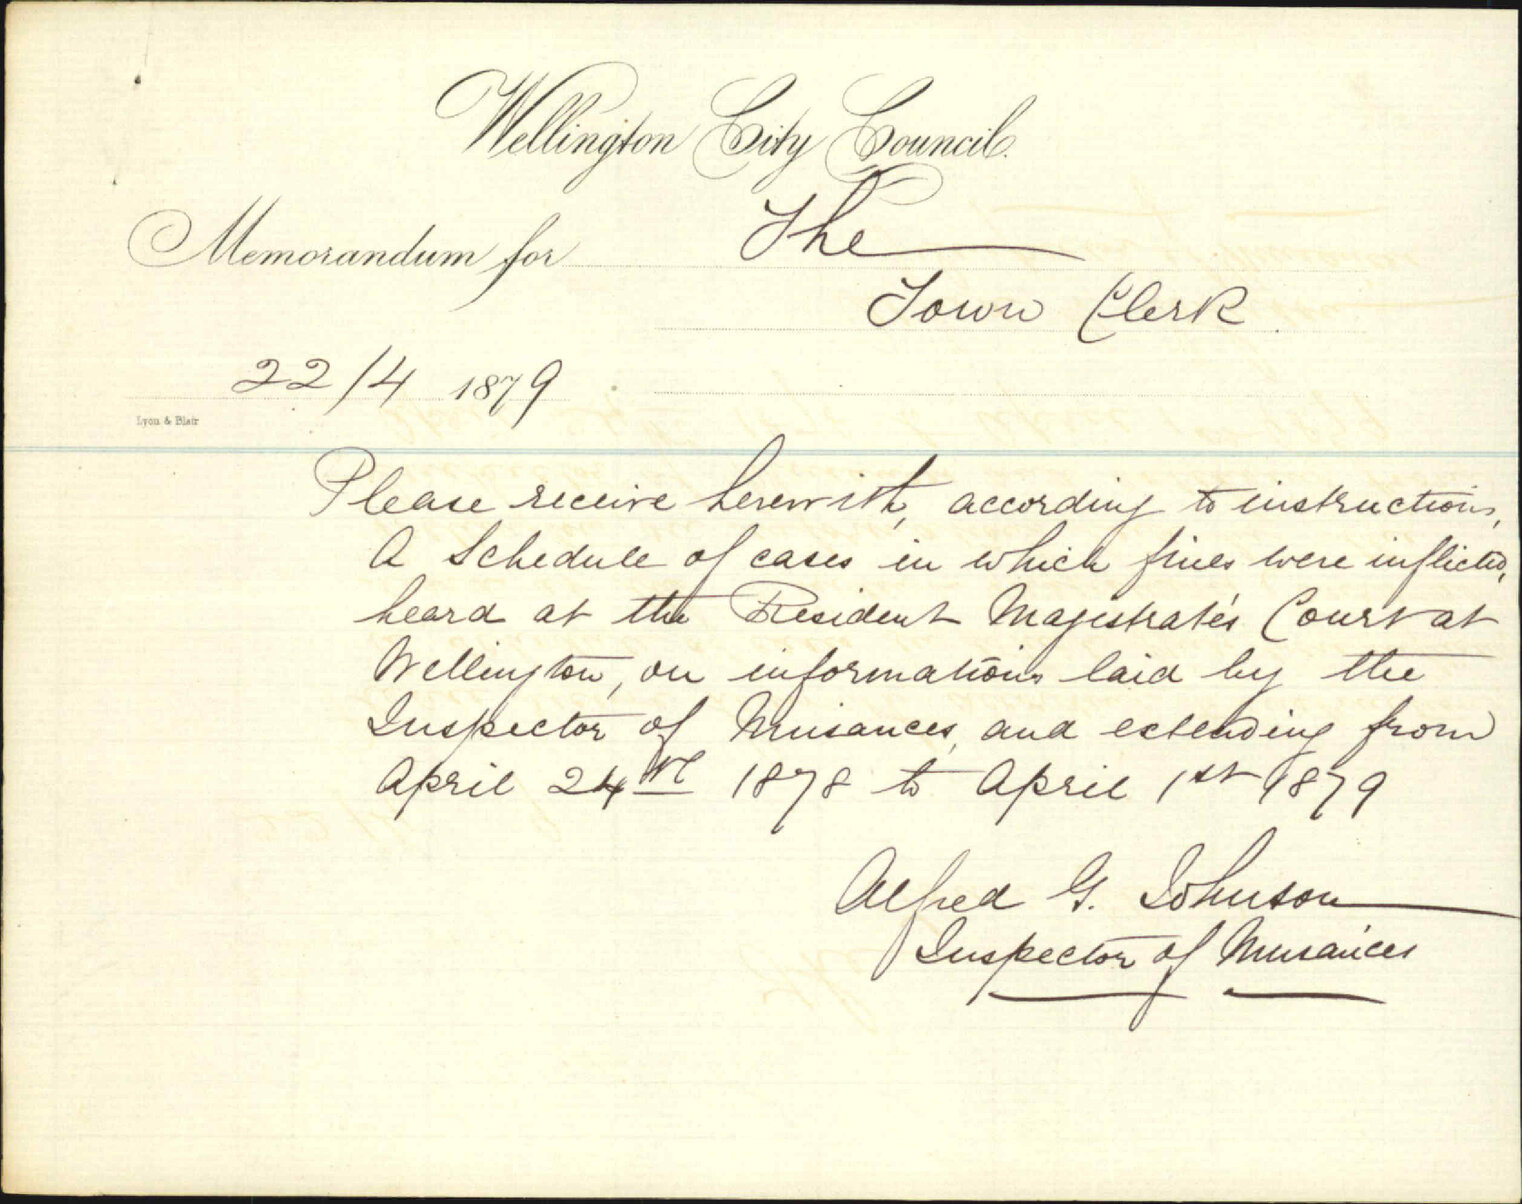 Wellington City Council.
Memorandum for The
Town Clerk
22/4 1879
Lyon & Blair
Please receive herewith, according to instructions,
A Schedule of cases in which fines were inflicted,
heard at the Resident Magistrate's Court at
Wellington, on informations laid by the
Inspector of Nuisances, and extending from
April 24th 1878 to April 1st 1879
Alfred G. Johnson
Inspector of Nuisances